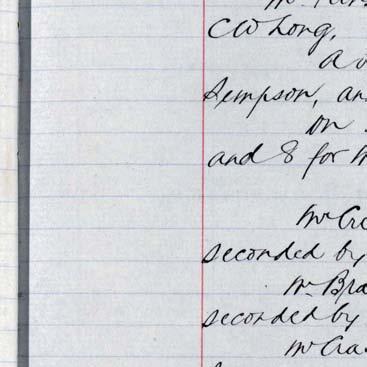 C W Long,
a
Sempson, an
on
and 8 for
Mr Cr
seconded by
Mr Bra
seconded by
Mr Cra